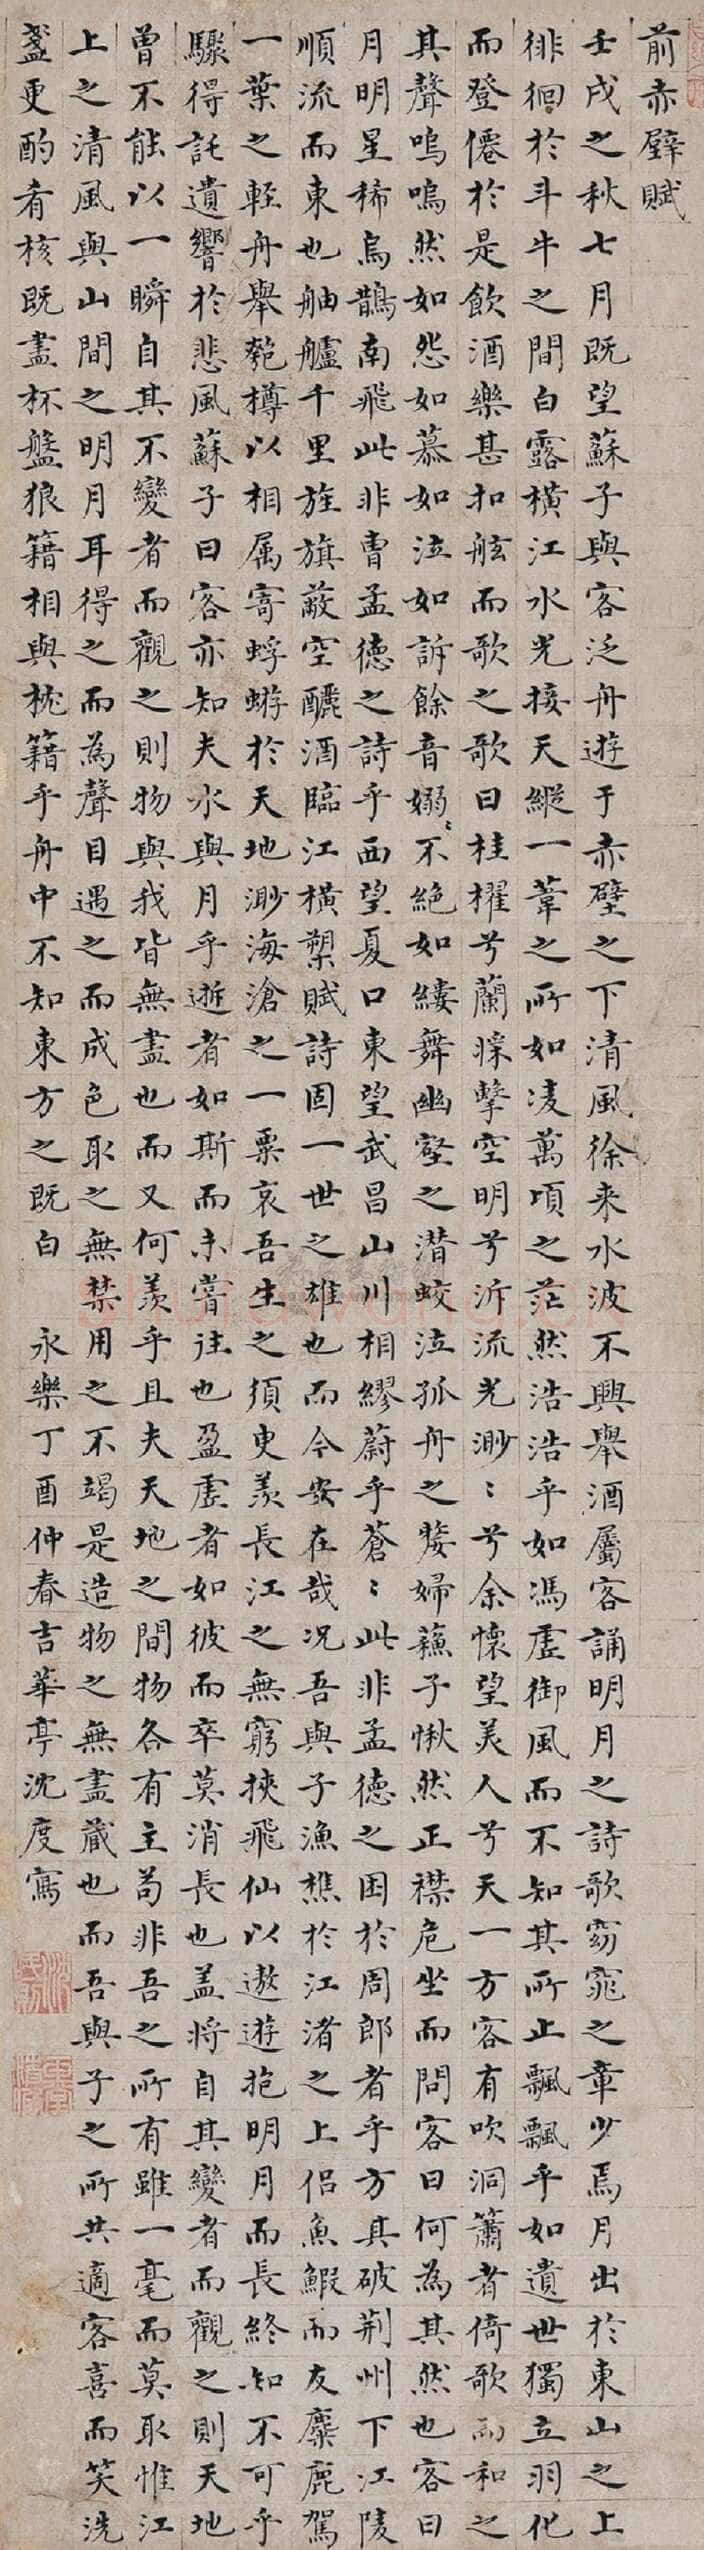 前赤壁賦
壬戌之秋七月既望蘇子與客泛舟遊于赤壁之下清風徐来水波不興舉酒屬客誦明月之詩歌窈窕之章少焉月出於東山之上
徘徊於斗牛之間白露橫江水光接天縱一葦之所如凌萬頃之茫然浩浩乎如馮虛御風而不知其所止飄飄乎如遺世獨立羽化
而登僊於是飲酒樂甚扣舷而歌之歌曰桂櫂兮蘭槳擊空明兮泝流光渺〻兮余懷望美人兮天一方客有吹洞簫者倚歌而和之
其聲嗚嗚然如怨如慕如泣如訴餘音嫋〻不絕如縷舞幽壑之潛蛟泣孤舟之嫠婦蘓子愀然正襟危坐而問客曰何為其然也客曰
月明星稀烏鵲南飛此非曹孟德之詩乎西望夏口東望武昌山川相繆蔚乎蒼〻此非孟德之困於周郎者乎方其破荆州下江陵
順流而東也舳艫千里旌旗蔽空釃酒臨江橫槊賦詩固一世之雄也而今安在哉况吾與子漁樵於江渚之上侶魚鰕而友麋鹿駕
一葉之輕舟舉匏樽以相属寄蜉蝣於天地渺海滄之一粟哀吾生之須臾羨長江之無窮挾飛仙以遨遊抱明月而長終知不可乎
驟得託遺響於悲風蘇子曰客亦知夫水與月乎逝者如斯而未嘗往也盈虛者如彼而卒莫消長也盖將自其變者而觀之則天地
曾不能以一瞬自其不變者而觀之則物與我皆無盡也而又何羨乎且夫天地之間物各有主苟非吾之所有雖一毫而莫取惟江
上之清風與山間之明月耳得之而為聲目遇之而成色取之無禁用之不竭是造物之無盡蔵也而吾與子之所共適客喜而笑洗
盞更酌肴核既盡杯盤狼籍相與枕籍乎舟中不知東方之既白 永樂丁酉仲春吉華亭沈度寫